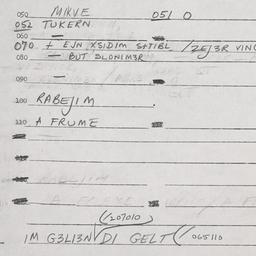 050 MIKVE 051 0
052 TUKERN
060
070 + EJN XSIDIM SHTIBL / ZEJ3R VIN
080 — BUT SLONIM3R
090
100 RABEJIM
110 A FRUME
(/207010)
IM G3LI3N √ DI GELT (/065110